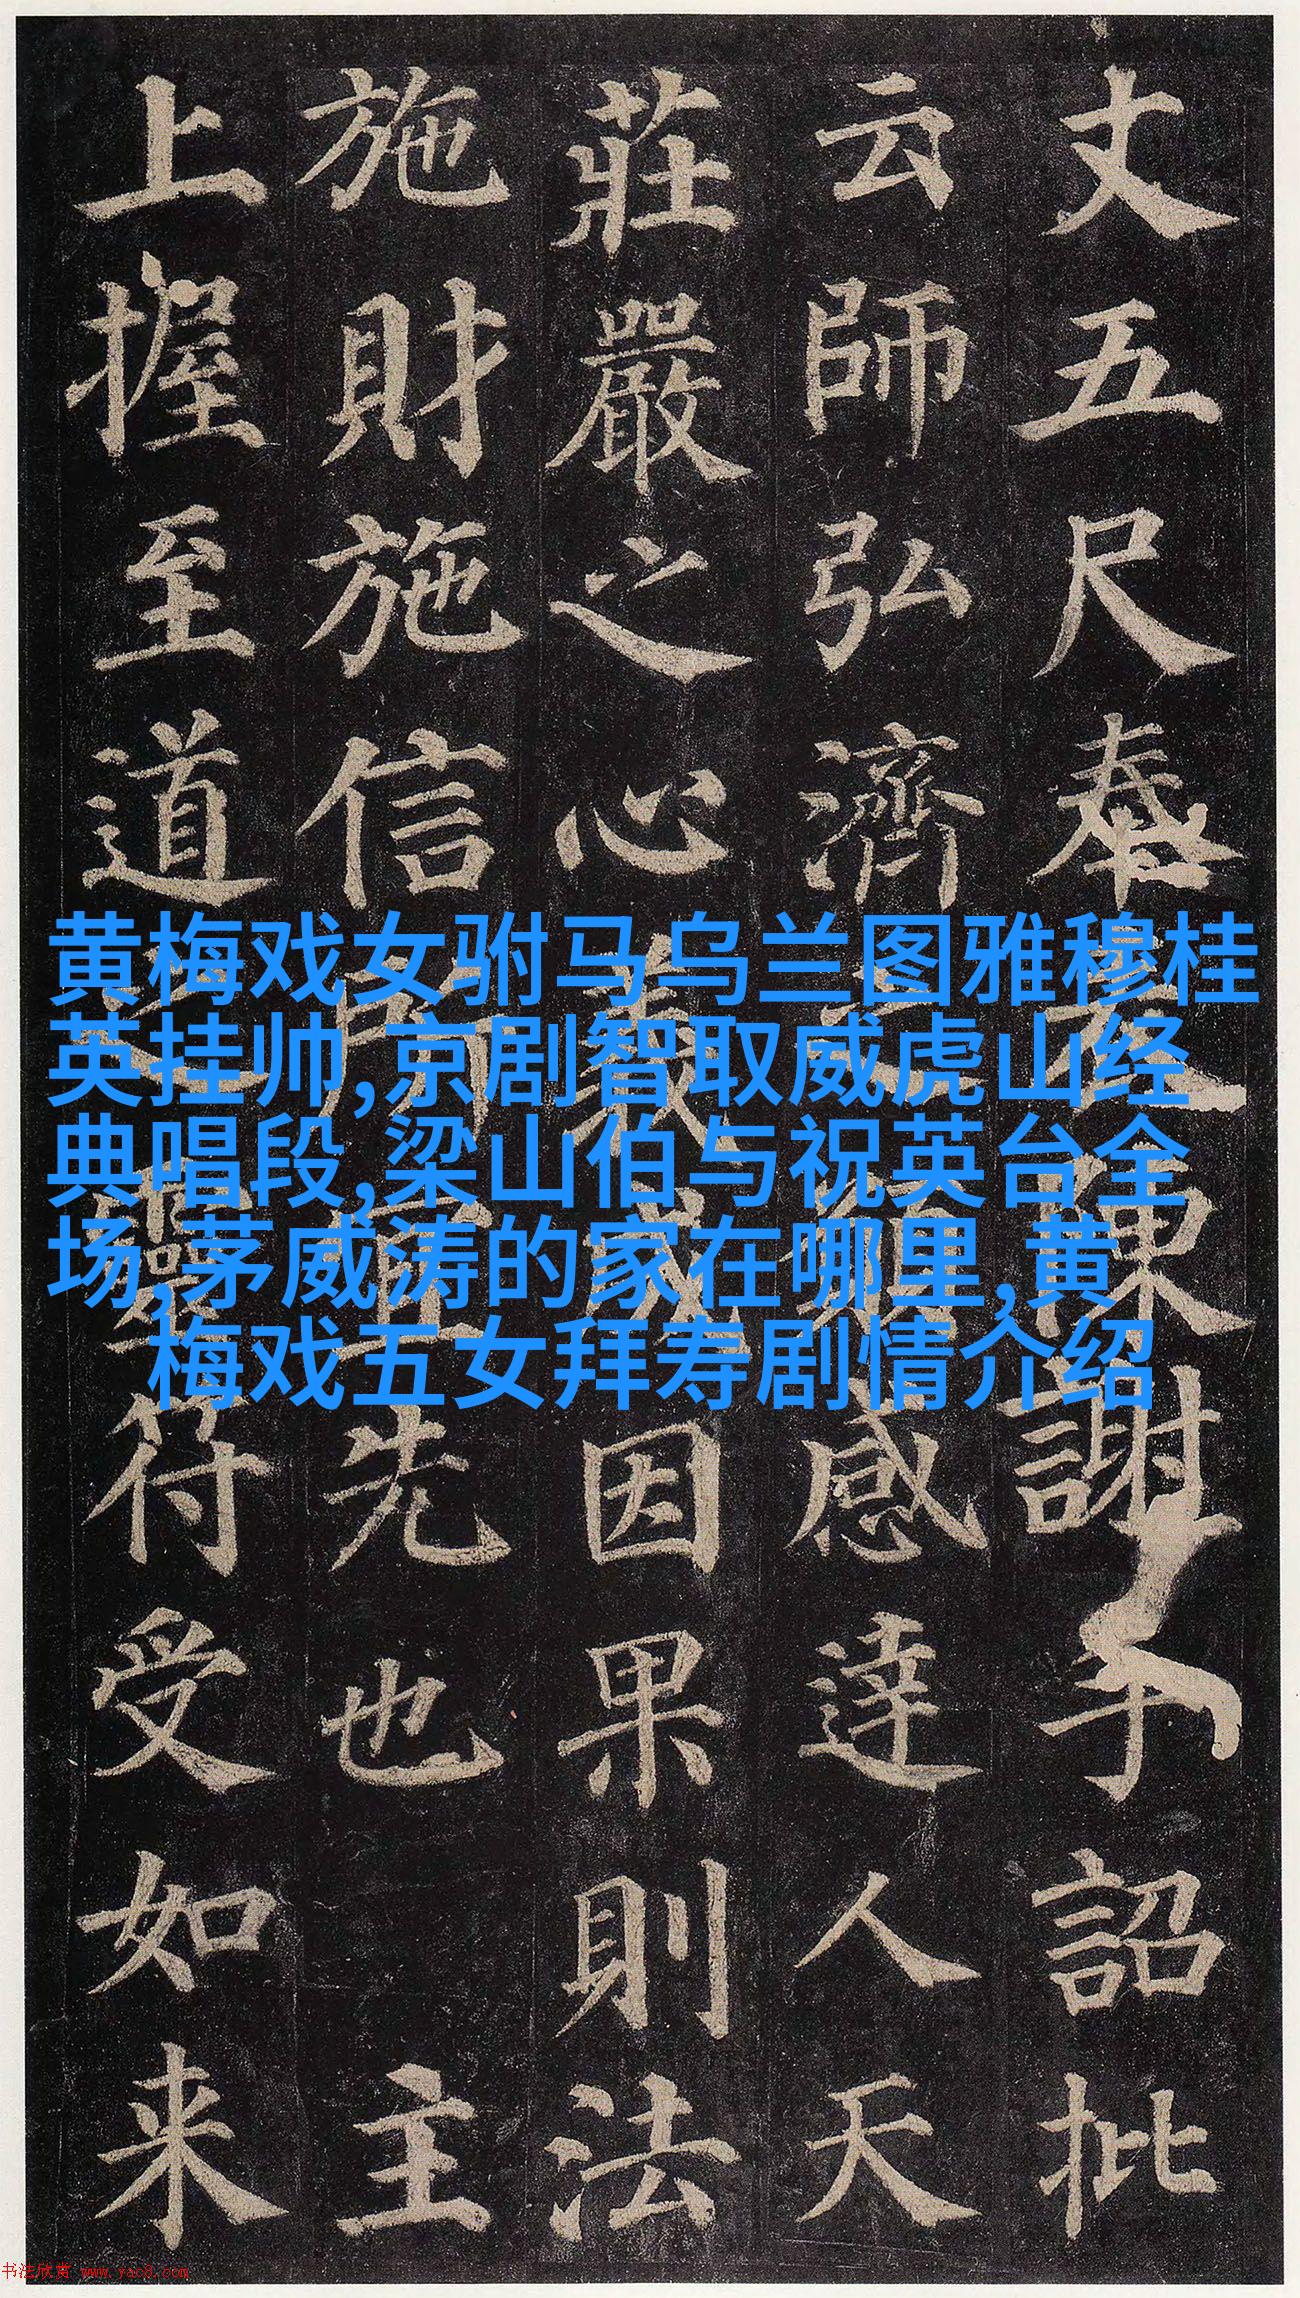 丈五尺奉表陳謝手詔批
云師弘濟之願感達人天
莊嚴之心義成因果則法
施財施信所宜先也 主
上握至道之靈符受如来
黄梅戏女驸马乌兰图雅穆桂
英挂帅,京剧智取威虎山经
典唱段,梁山伯与祝英台全
场,茅威涛的家在哪里,黄
梅戏五女拜寿剧情介绍
书法欣赏 www.yac8.com